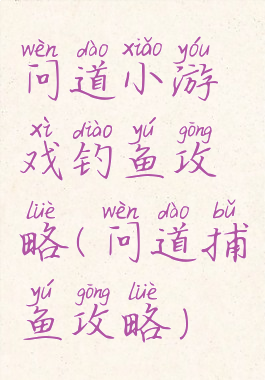 wèn dào xiǎo yóu
问道小游
xì diào yú gōng
戏钓鱼攻
lüè wèn dào bǔ
略(问道捕
yú gōng lüè
鱼攻略)